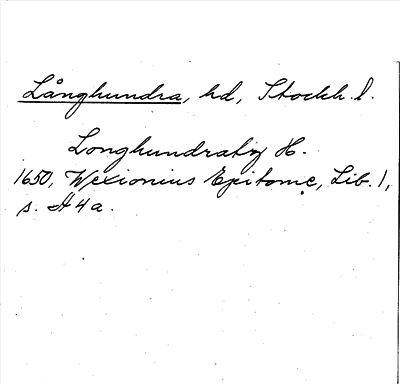 Långhundra, hd, Stockh. l.
Longhundraby H.
1650, Wexionius Epitome, Lib. 1,
s. A 4 a.